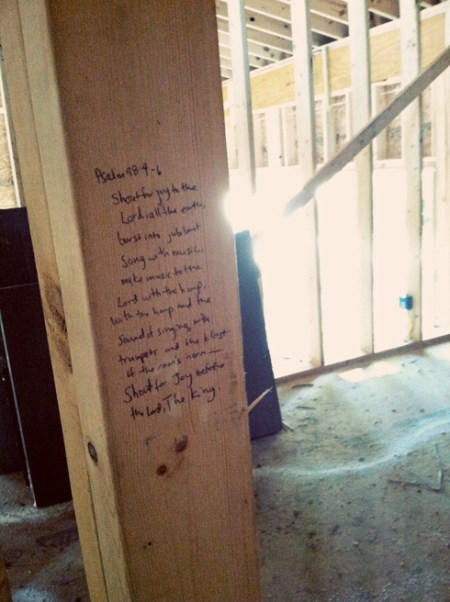 Psalm 98:4-6
Shout for joy to the
Lord, all the earth,
burst into jubilant
Song with music,
make music to the
Lord with the harp,
with the harp and the
sound of singing, with
trumpets and the blast
of the ram's horn —
Shout for Joy before
the Lord, The King.